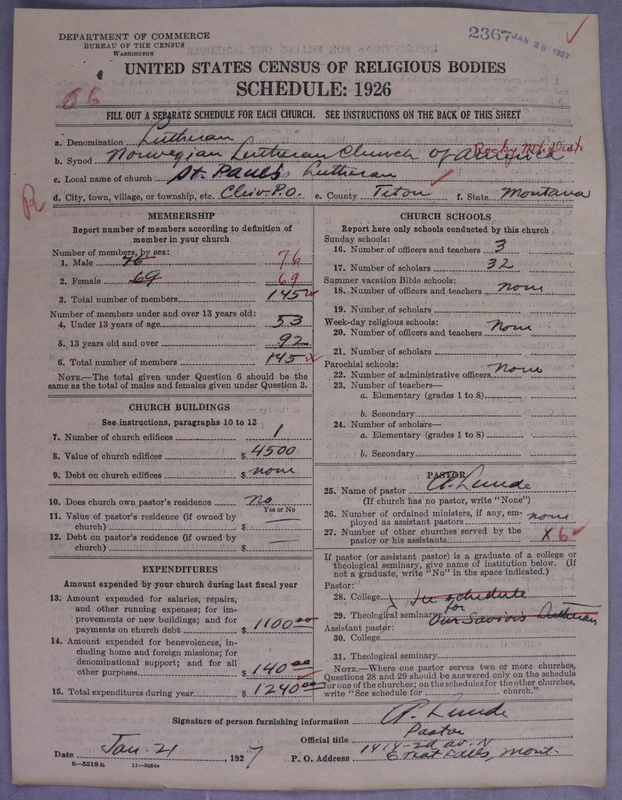 DEPARTMENT OF COMMERCE
BUREAU OF THE CENSUS
WASHINGTON
2367 JAN 26 1927
UNITED STATES CENSUS OF RELIGIOUS BODIES
SCHEDULE: 1926
66
FILL OUT A SEPARATE SCHEDULE FOR EACH CHURCH. SEE INSTRUCTIONS ON THE BACK OF THIS SHEET
a. Denomination Lutheran
b. Synod Norwegian Lutheran Church of America Rocky Mt. Dist.
c. Local name of church St. Pauls Lutheran
R
d. City, town, village, or township, etc. P.O. e. County Teton f. State Montana
MEMBERSHIP
Report number of members according to definition of
member in your church
Number of members, by sex:
1. Male 76 76
2. Female 69 69
3. Total number of members 145
Number of members under and over 13 years old:
4. Under 13 years of age 53
5. 13 years old and over 92
6. Total number of members 145
NOTE.—The total given under Question 6 should be the
same as the total of males and females given under Question 3.
CHURCH BUILDINGS
See instructions, paragraphs 10 to 12
7. Number of church edifices 1
8. Value of church edifices $ 4500
9. Debt on church edifices $ none
10. Does church own pastor's residence No
Yes or No
11. Value of pastor's residence (if owned by
church) $ —
12. Debt on pastor's residence (if owned by
church) $ —
EXPENDITURES
Amount expended by your church during last fiscal year
13. For salaries, repairs,
and other running expenses; for im-
provements or new buildings; and for
payments on church debt $ 1100.00
14. Amount expended for benevolences, in-
cluding home and foreign missions; for
denominational support; and for all
other purposes $ 140.00
15. Total expenditures during year $ 1240.00
CHURCH SCHOOLS
Report here only schools conducted by this church
Sunday schools:
16. Number of officers and teachers 3
17. Number of scholars 32
Summer vacation Bible schools:
18. Number of officers and teachers none
19. Number of scholars
Week-day religious schools:
20. Number of officers and teachers none
21. Number of scholars
Parochial schools:
22. Number of administrative officers none
23. Number of teachers—
a. Elementary (grades 1 to 8)
b. Secondary
24. Number of scholars—
a. Elementary (grades 1 to 8)
b. Secondary
PASTOR
25. Name of pastor Lunde
(If church has no pastor, write "None")
26. Number of ordained ministers, if any, em-
ployed as assistant pastors none
27. Number of other churches served by the
pastor or his assistants X 6
If pastor (or assistant pastor) is a graduate of a college or
theological seminary, give name of institution below. (If
not a graduate, write "No" in the space indicated.)
Pastor:
28. College In schedule
for
29. Theological seminary Our Saviors Lutheran
Assistant pastor:
30. College
31. Theological seminary
NOTE.—Where one pastor serves two or more churches,
Questions 28 and 29 should be answered only on the schedule
for one of the churches; on the schedules for the other churches,
write "See schedule for church."
Signature of person furnishing information Lunde
Official title Pastor
Date Jan. 21, 1927 P. O. Address 1414-2d av. N
Great Falls, Mont.
8—5518a 11—9084a